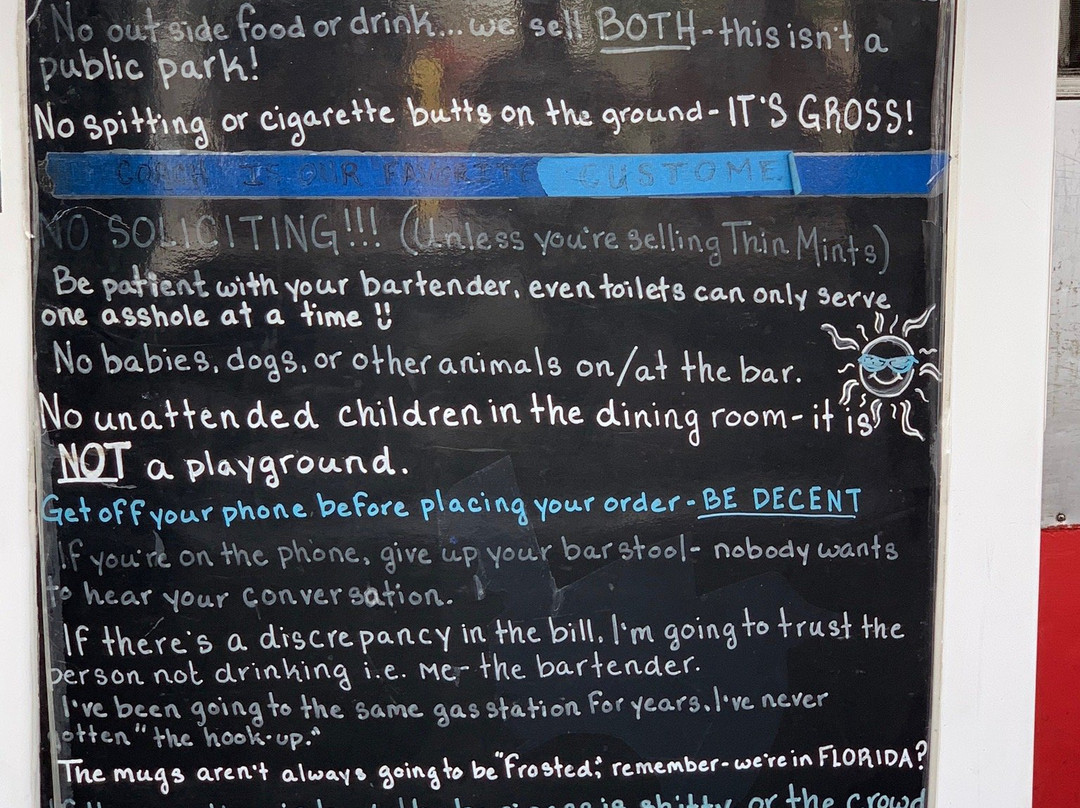 No out side food or drink... we sell BOTH - this isn't a
public park!
No spitting or cigarette butts on the ground - IT'S GROSS!
COACH IS OUR FAVORITE CUSTOME
NO SOLICITING!!! (Unless you're selling Thin Mints)
Be patient with your bartender, even toilets can only serve
one asshole at a time !!
No babies, dogs, or other animals on/at the bar.
No unattended children in the dining room - it is
NOT a playground.
Get off your phone before placing your order - BE DECENT
If you're on the phone, give up your barstool - nobody wants
to hear your conversation.
If there's a discrepancy in the bill, I'm going to trust the
person not drinking i.e. Me - the bartender.
I've been going to the same gas station for years. I've never
otten "the hook-up."
The mugs aren't always going to be "frosted," remember - we're in FLORIDA?
is shitty or the crowd